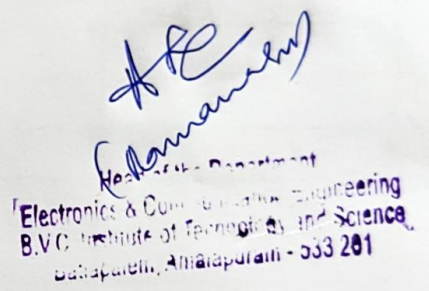 Head of the Department
Electronics & Communication Engineering
B.V.C. Institute of Technology and Science
Batlapalem, Amalapuram - 533 201